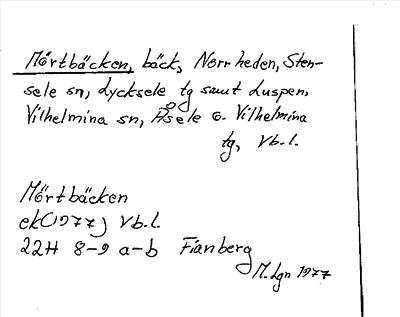 Mörtbäcken, bäck, Norrheden, Sten-
sele sn, Lycksele tg samt Luspen,
Vilhelmina sn, Åsele o. Vilhelmina
tg, Vb.l.
Mörtbäcken
ek(1977) Vb.l.
22H 8-9 a-b Fianberg
M.Lgn 1977